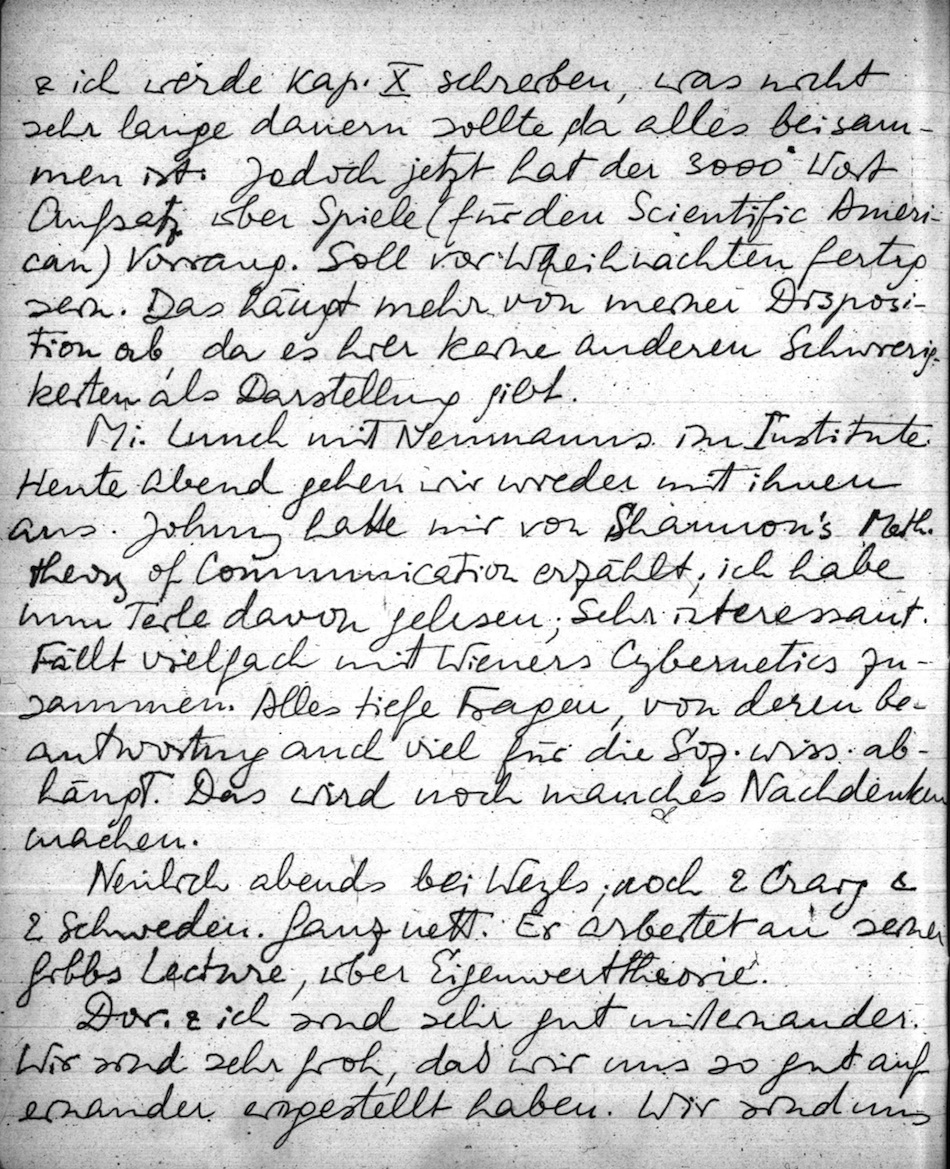 & ich werde Kap. X schreiben, was nicht
sehr lange dauern sollte, da alles beisam-
men ist. Jedoch jetzt hat der 3000 Wort
Aufsatz über Spiele (für den Scientific Ameri-
can) Vorrang. Soll vor Weihnachten fertig
sein. Das hängt mehr von meiner Disposi-
tion ab, da es hier keine anderen Schwierig-
keiten als Darstellung gibt.
Mi. Lunch mit Neumanns im Institute.
Heute Abend gehen wir wieder mit ihnen
aus. Johnny hatte mir von Shannon's Math.
theory of Communication erzählt; ich habe
nun Teile davon gelesen; sehr interessant.
Fällt vielfach mit Wieners Cybernetics zu-
sammen. Alles tiefe Fragen, von deren be-
antwortung auch viel für die Soz. wiss. ab-
hängt. Das wird noch manches Nachdenken
machen.
Neulich abends bei Weyls; noch 2 Craig &
2 Schweden. Ganz nett. Er arbeitet an seiner
Gibbs Lecture, über Eigenwerttheorie.
Dor. & ich sind sehr gut miteinander.
Wir sind sehr froh, das wir uns so gut auf
einander eingestellt haben. Wir sind uns